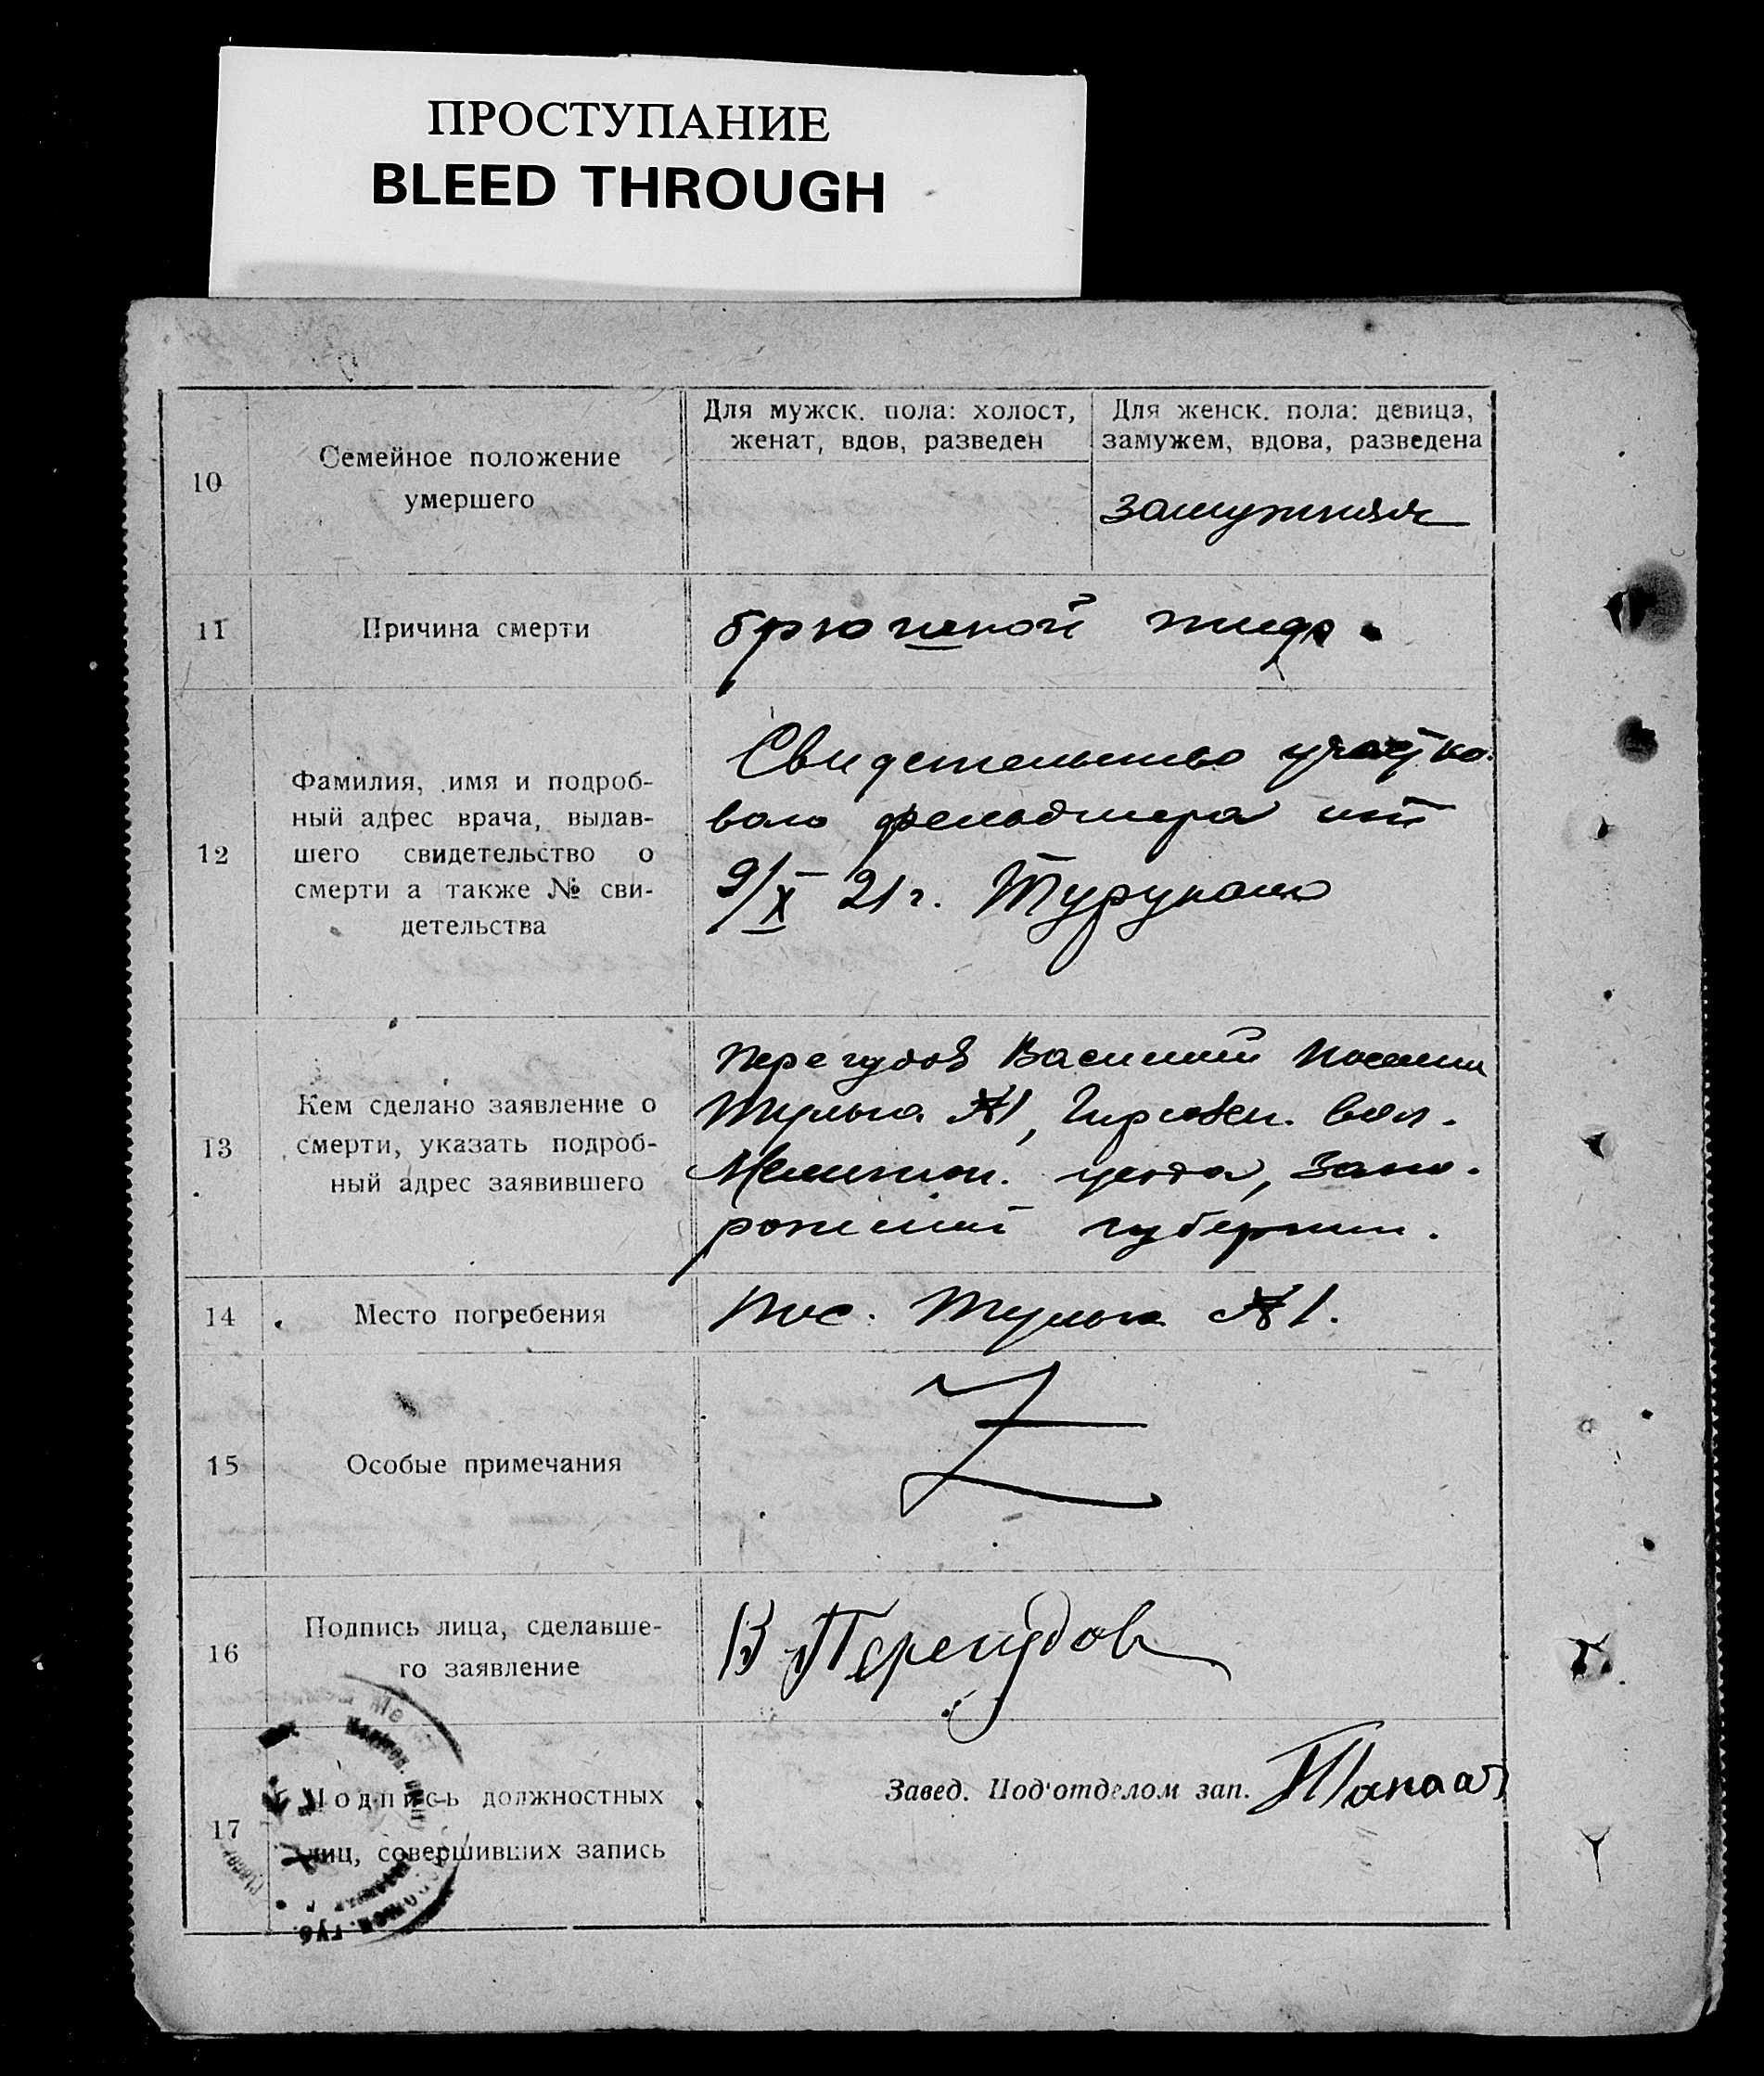 ПРОСТУПАНИЕ
BLEED THROUGH
10
Семейное положение
умершего
Для мужск. пола: холост,
женат, вдов, разведен
Для женск. пола: девица,
замужем, вдова, разведена
замужняя
11
Причина смерти
брюшной тиф.
12
Фамилия, имя и подроб-
ный адрес врача, выдав-
шего свидетельство о
смерти а также № сви-
детельства
Свидетельство участко-
вого фельдшера от
9/X 21 г.
13
Кем сделано заявление о
смерти, указать подроб-
ный адрес заявившего
Перегудов Василий
№1, вол.
Мелитоп. уезда, Запо-
рожской губернии.
14
Место погребения
пос. №1.
15
Особые примечания
Z
16
Подпись лица, сделавше-
го заявление
В Перегудов
17
Подпись должностных
лиц, совершивших запись
Завед. Под'отделом зап.
ГУБ.